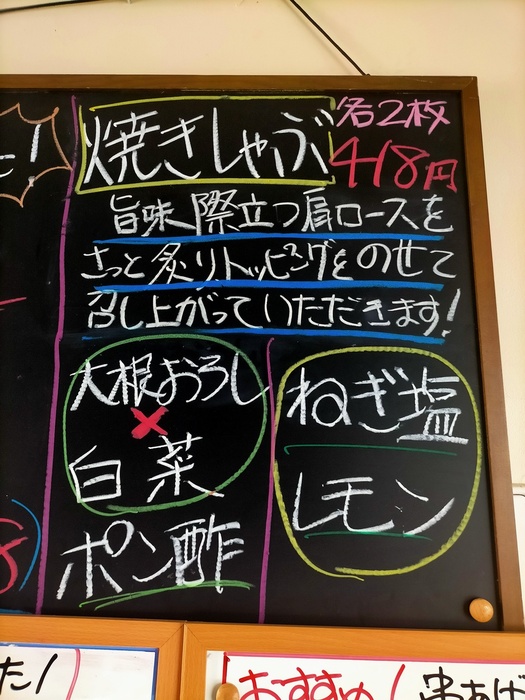 焼きしゃぶ
各2枚
418円
旨味際立つ肩ロースを
さっと炙りトッピングをのせて
召し上がっていただきます!
大根おろし
×
白菜
ポン酢
ねぎ塩
レモン
た!
おすすめ! 串あげ